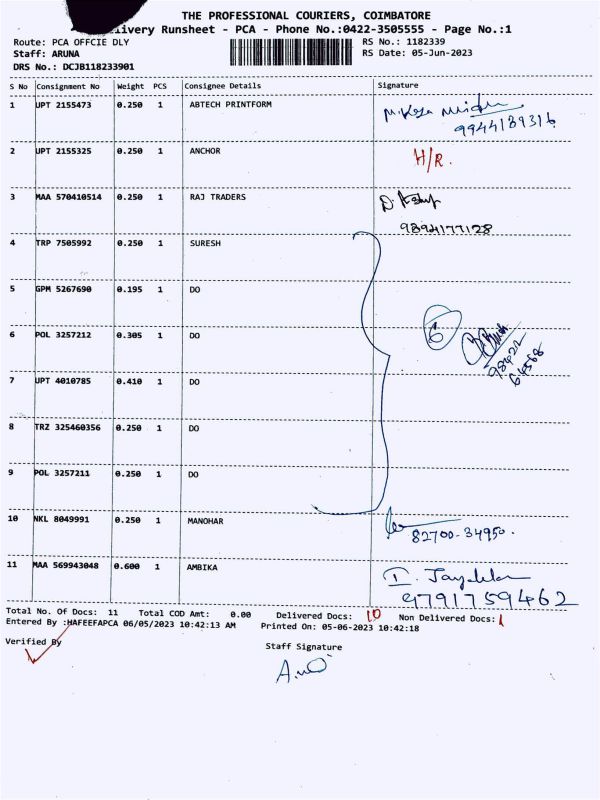 THE PROFESSIONAL COURIERS, COIMBATORE
Delivery Runsheet - PCA - Phone No.:0422-3505555 - Page No.:1
Route: PCA OFFCIE DLY RS No.: 1182339
Staff: ARUNA RS Date: 05-Jun-2023
DRS No.: DCJB118233901
S No Consignment No Weight PCS Consignee Details Signature
1 UPT 2155473 0.250 1 ABTECH PRINTFORM
9944139316
2 UPT 2155325 0.250 1 ANCHOR H/R.
3 MAA 570410514 0.250 1 RAJ TRADERS
9894177128
4 TRP 7505992 0.250 1 SURESH
5 GPM 5267690 0.195 1 DO
6 POL 3257212 0.305 1 DO 6
98422
64568
7 UPT 4010785 0.410 1 DO
8 TRZ 325460356 0.250 1 DO
9 POL 3257211 0.250 1 DO
10 NKL 8049991 0.250 1 MANOHAR
82700-34950.
11 MAA 569943048 0.600 1 AMBIKA
9791759462
Total No. Of Docs: 11 Total COD Amt: 0.00 Delivered Docs: 10 Non Delivered Docs: 1
Entered By :HAFEEFAPCA 06/05/2023 10:42:13 AM Printed On: 05-06-2023 10:42:18
Verified By Staff Signature